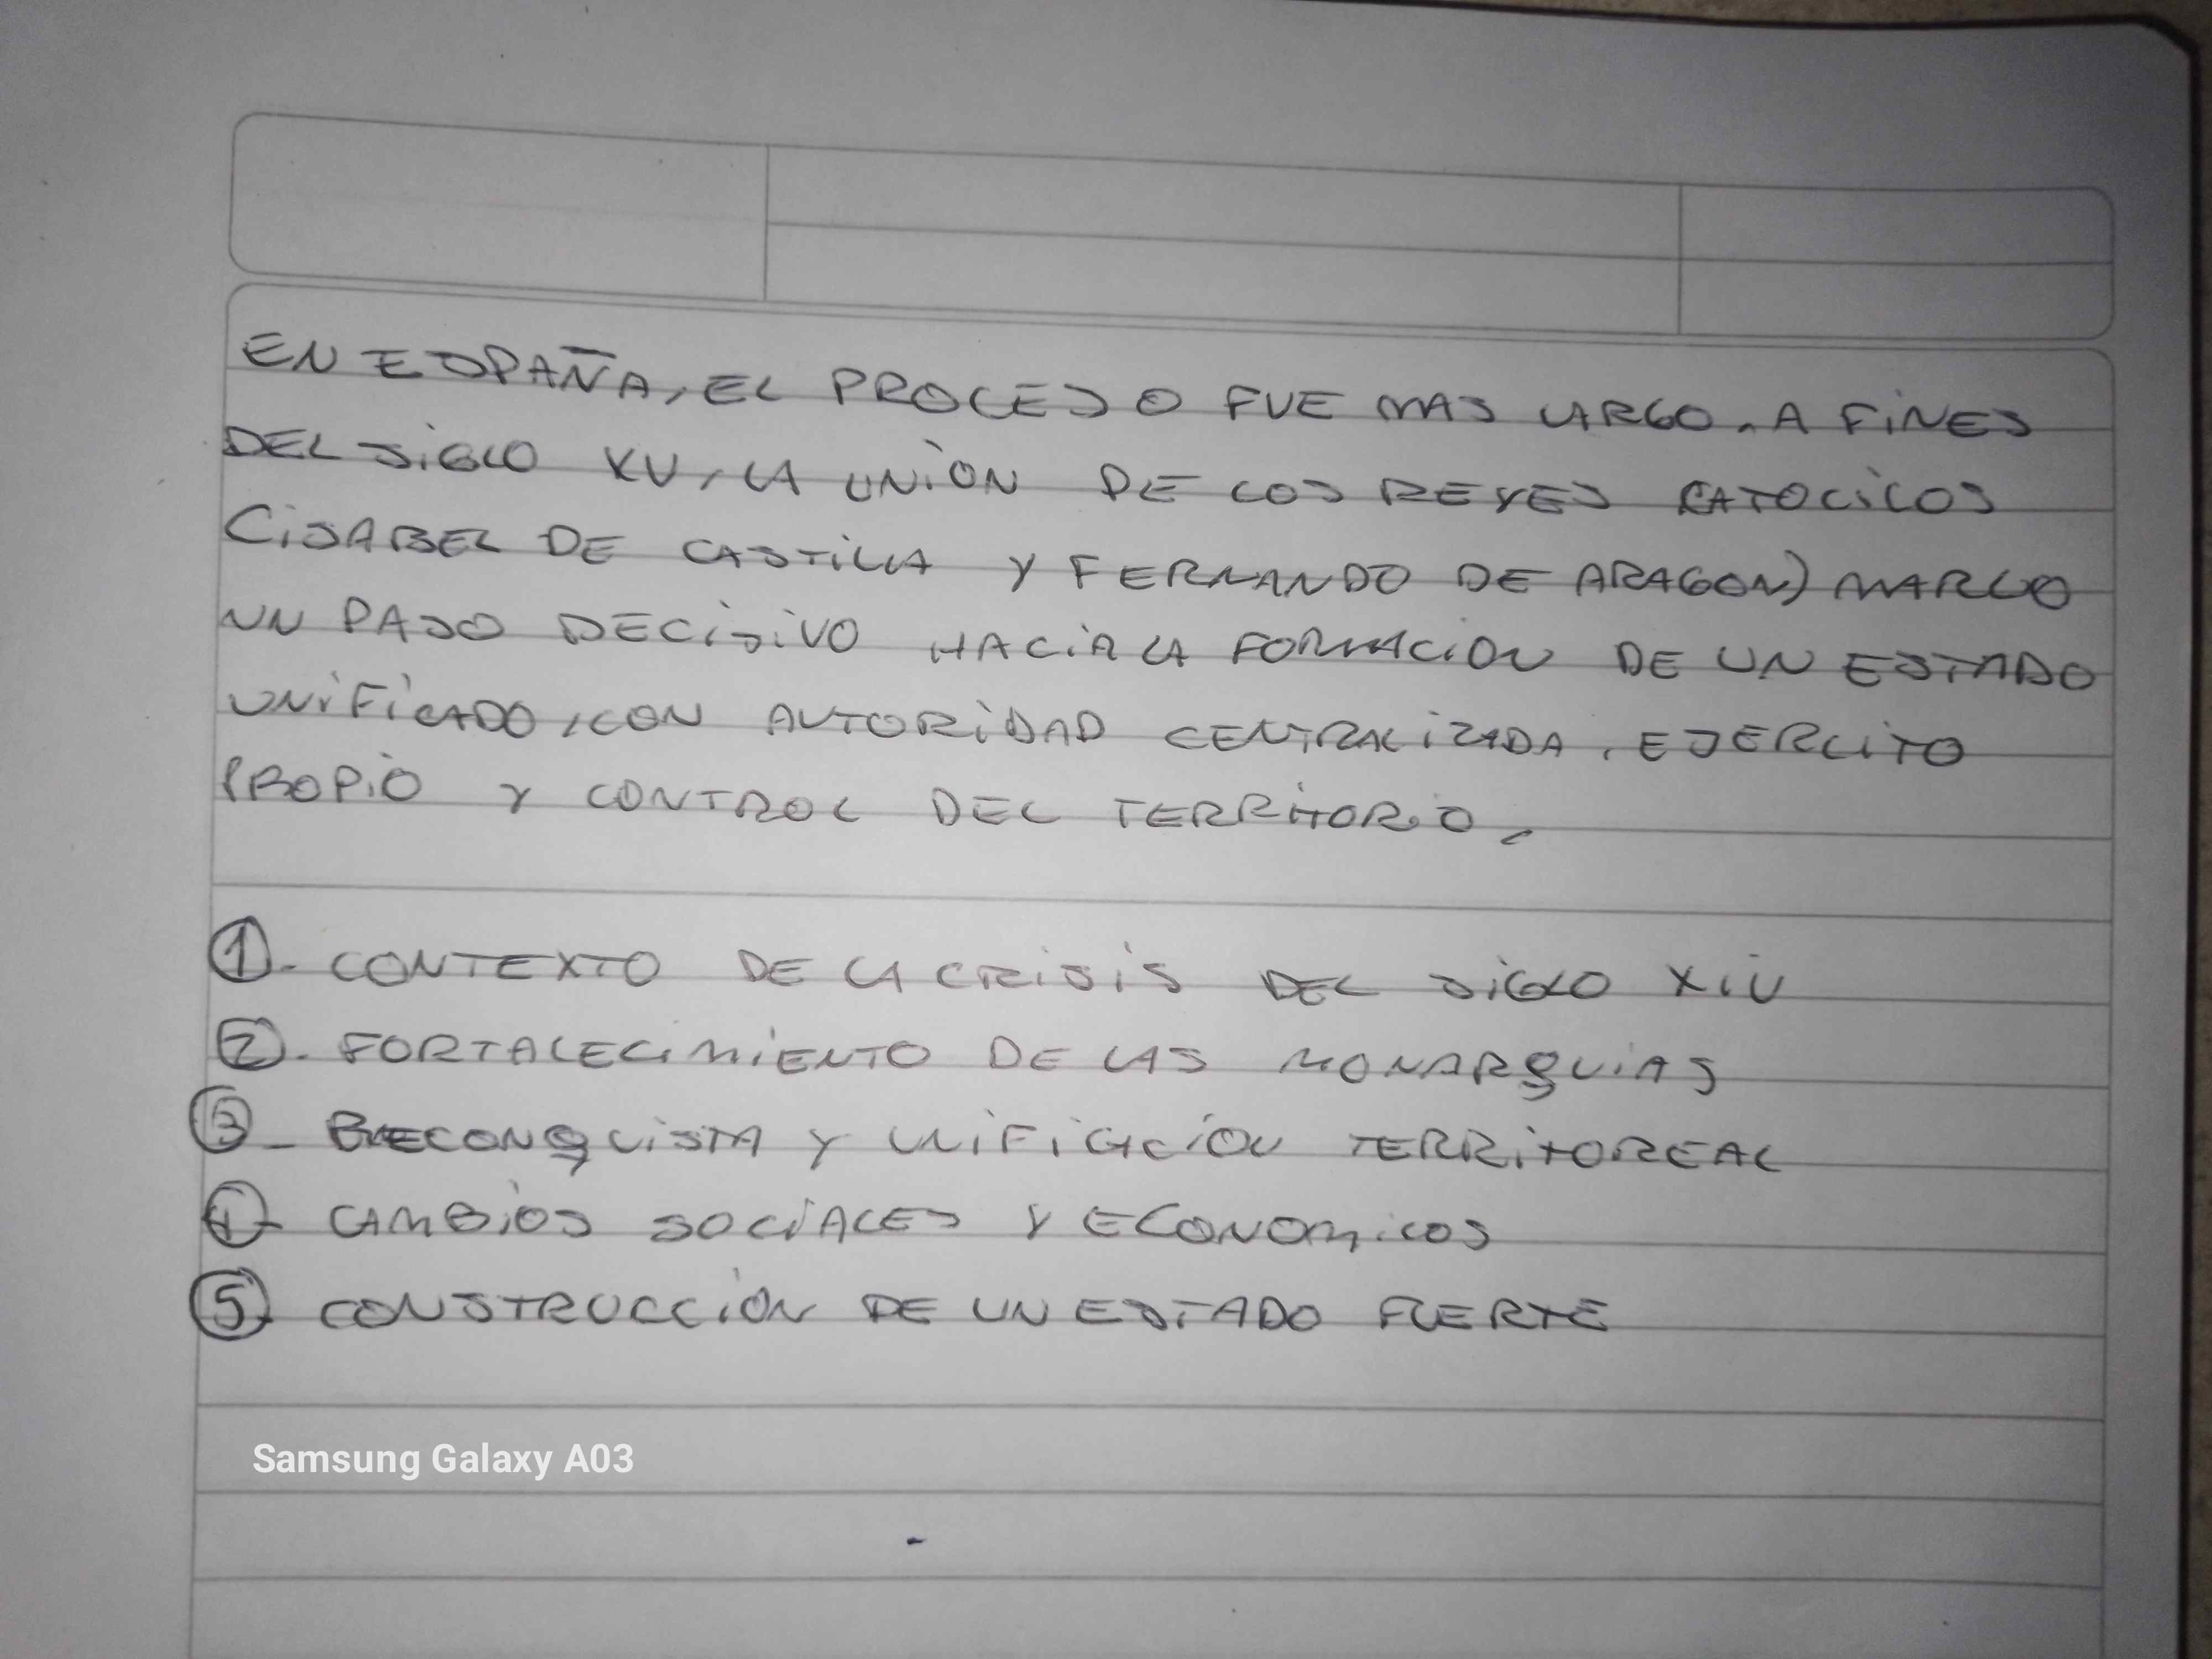 EN ESPAÑA, EL PROCESO FUE MAS LARGO. A FINES
DEL SIGLO XV, LA UNION DE LOS REYES CATOLICOS
(ISABEL DE CASTILLA Y FERNANDO DE ARAGON) MARCO
UN PASO DECISIVO HACIA LA FORMACION DE UN ESTADO
UNIFICADO, CON AUTORIDAD CENTRALIZADA, EJERCITO
PROPIO Y CONTROL DEL TERRITORIO.
1. CONTEXTO DE LA CRISIS DEL SIGLO XIV
2. FORTALECIMIENTO DE LAS MONARQUIAS
3- RECONQUISTA Y UNIFICACION TERRITOREAL
4- CAMBIOS SOCIALES Y ECONOMICOS
5- CONSTRUCCION DE UN ESTADO FUERTE
Samsung Galaxy A03